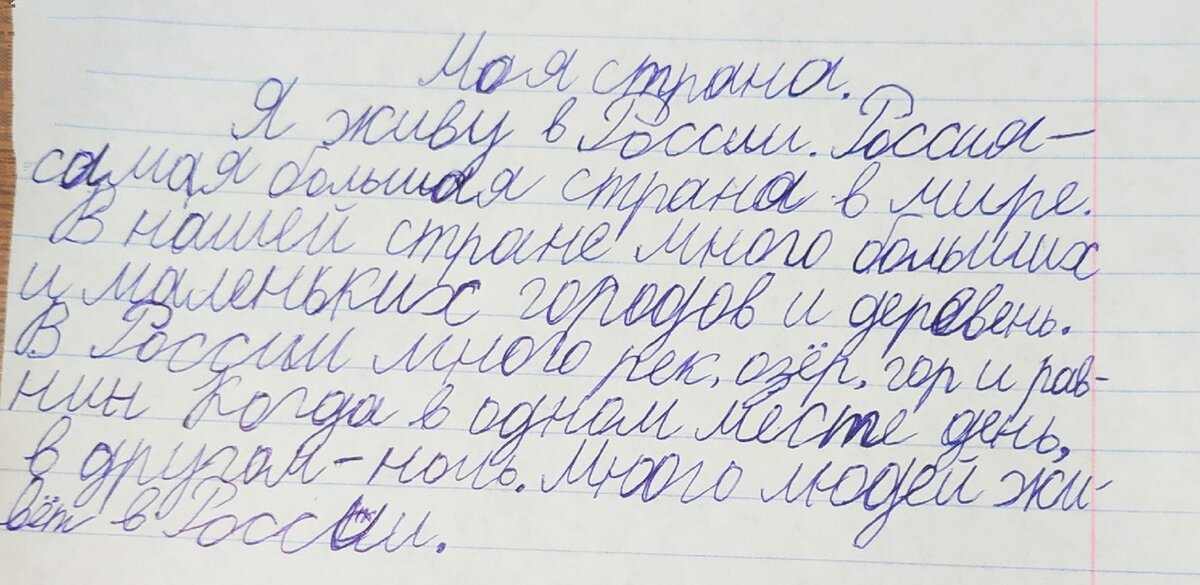 Моя страна.
Я живу в России. Россия-
самая большая страна в мире.
В нашей стране много больших
и маленьких городов и деревень.
В России много рек, озёр, гор и рав-
нин Когда в одном месте день,
в другом - ночь. Много людей жи-
вёт в России.